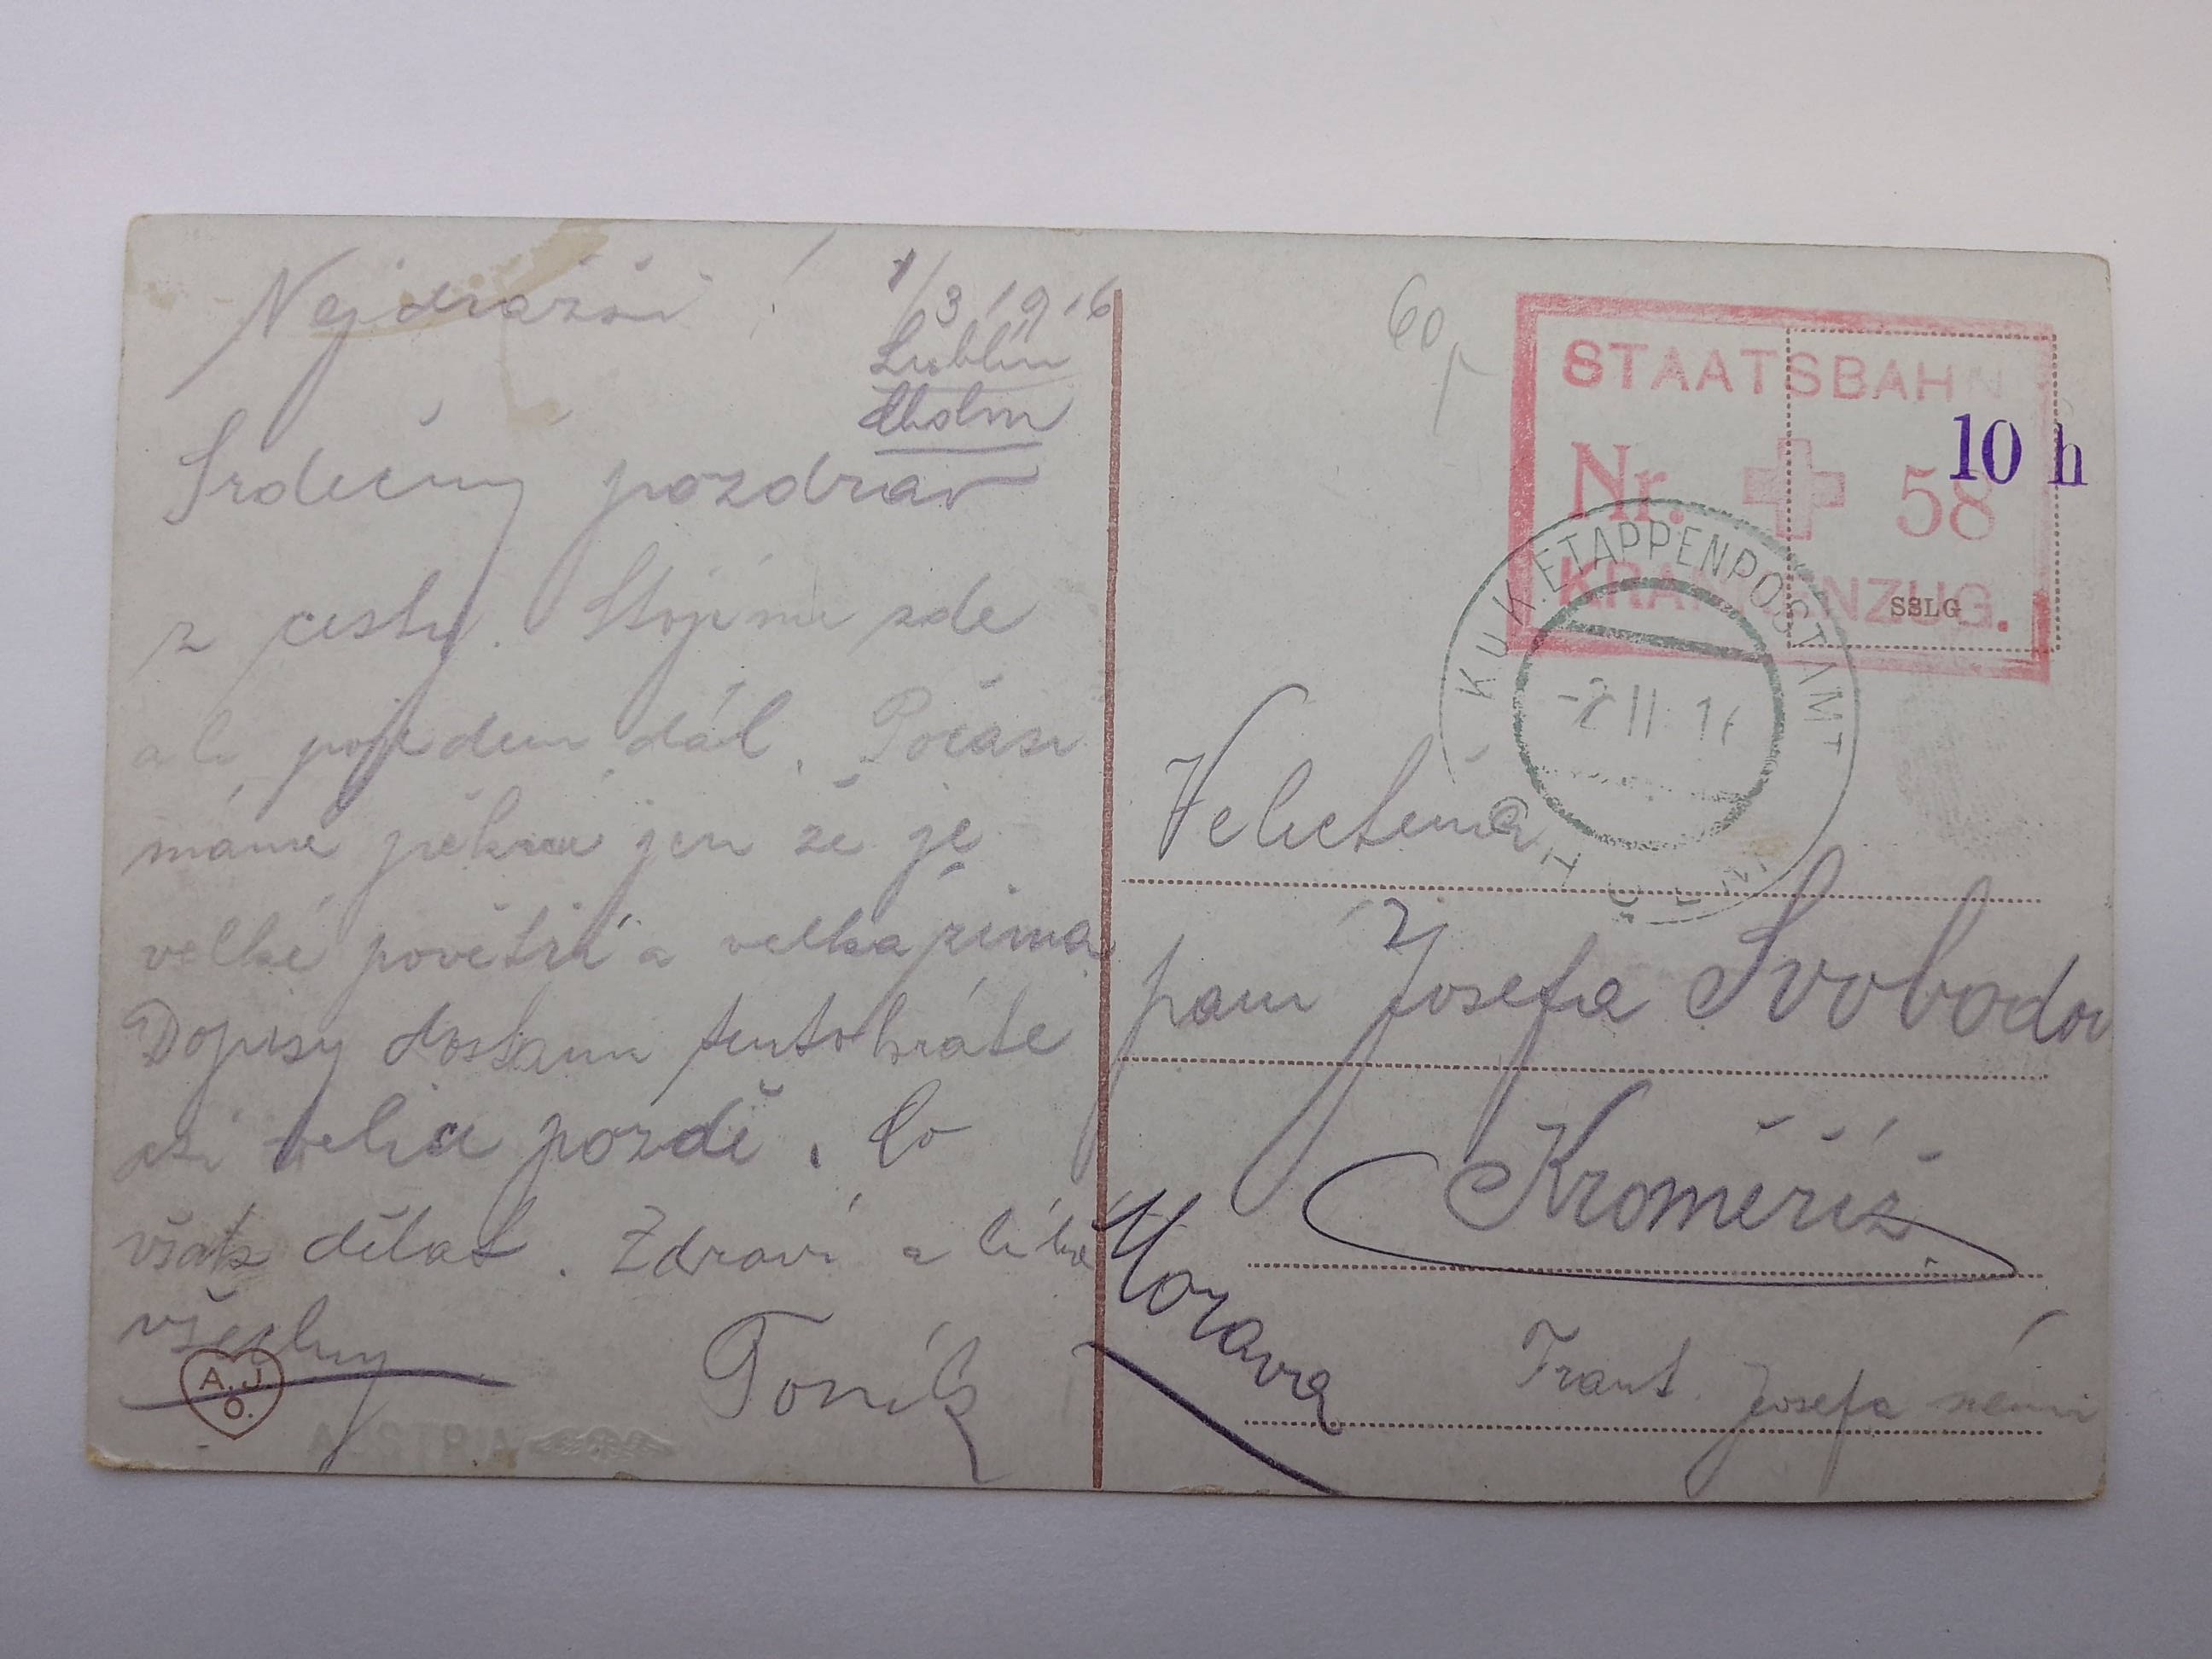 Nejdražší !
1/3 1916
Lublin
Cholm
Srdečný pozdrav
z cesty. Stojíme zde
ale pojedem dál. Počasí
máme pěkné jen že je
velké povětří a velka zima
Dopisy dostanu tentokráte
asi velice pozdě. Co
však dělat. Zdraví a líbá
všechny
Toník
A. J. O.
AUSTRIA
60,-
STAATSBAHN
Nr. 58
KRANKENZUG.
10 h
SSLG
K.u.K. ETAPPENPOSTAMT
-2 II 16
Velectěná
paní Josefa Svobodov
Kroměříž.
Morava
Frant. Josefa nám